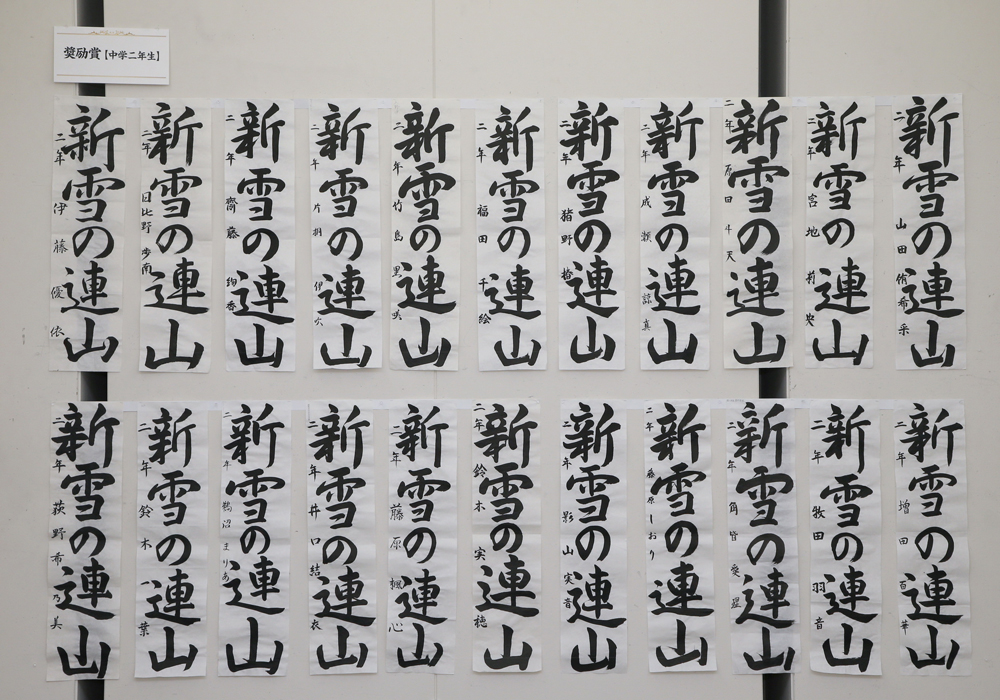 奨励賞【中学二年生】
新雪の連山
二年 伊藤優依
新雪の連山
二年 日比野歩南
新雪の連山
二年 齋藤絢香
新雪の連山
二年 片桐
新雪の連山
二年 竹島
新雪の連山
二年 福田千絵
新雪の連山
二年 猪野
新雪の連山
二年 成瀬諒真
新雪の連山
二年
新雪の連山
二年 宮地莉央
新雪の連山
二年 山田侑希采
新雪の連山
二年 荻野希乃美
新雪の連山
二年 鈴木一葉
新雪の連山
二年 鵜沼まりあ
新雪の連山
二年 井口結衣
新雪の連山
二年 藤原楓心
新雪の連山
二年 鈴木実穂
新雪の連山
二年 影山実音
新雪の連山
二年 藤原しおり
新雪の連山
二年 角皆愛
新雪の連山
二年 牧田羽音
新雪の連山
二年 増田百華